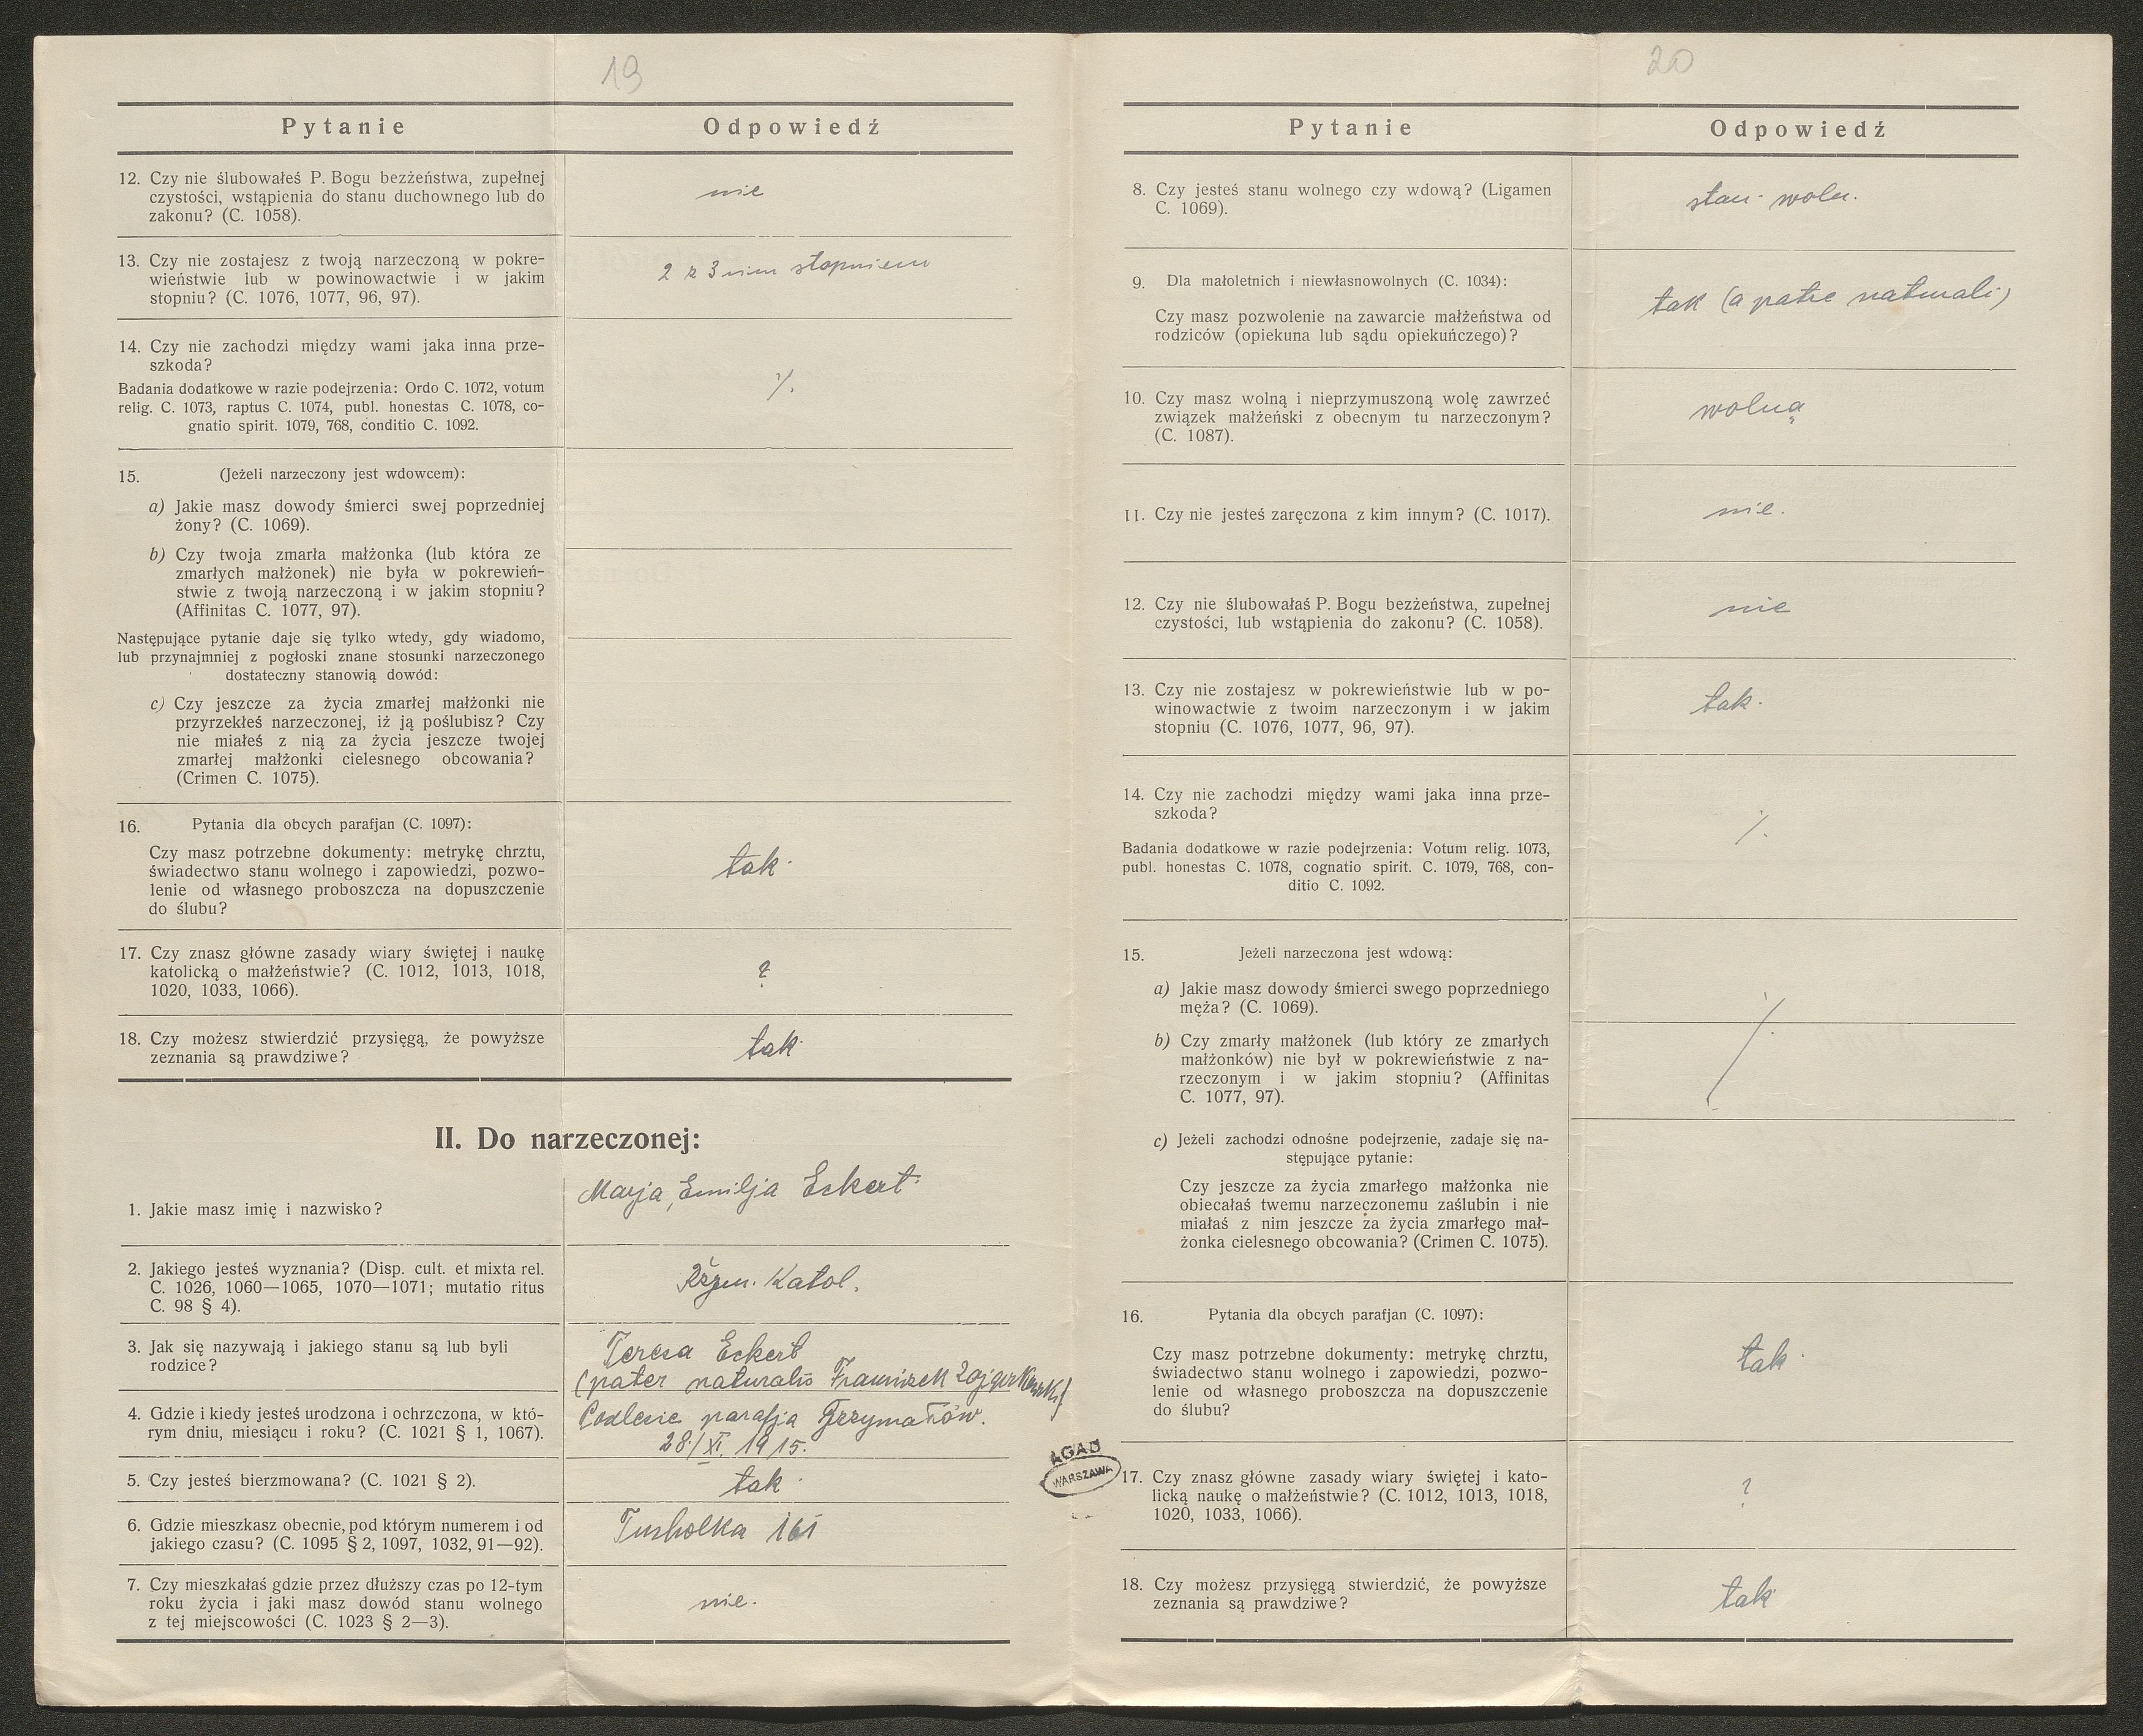 19
Pytanie
Odpowiedź
12. Czy nie ślubowałeś P. Bogu bezżeństwa, zupełnej
czystości, wstąpienia do stanu duchownego lub do
zakonu? (C. 1058).
nie
13. Czy nie zostajesz z twoją narzeczoną w pokre-
wieństwie lub w powinowactwie i w jakim
stopniu? (C. 1076, 1077, 96, 97).
2 z 3 nim stopniem
14. Czy nie zachodzi między wami jaka inna prze-
szkoda?
Badania dodatkowe w razie podejrzenia: Ordo C. 1072, votum
relig. C. 1073, raptus C. 1074, publ. honestas C. 1078, co-
gnatio spirit. 1079, 768, conditio C. 1092.
·/.
15. (Jeżeli narzeczony jest wdowcem):
a) Jakie masz dowody śmierci swej poprzedniej
żony? (C. 1069).
b) Czy twoja zmarła małżonka (lub która ze
zmarłych małżonek) nie była w pokrewień-
stwie z twoją narzeczoną i w jakim stopniu?
(Affinitas C. 1077, 97).
Następujące pytanie daje się tylko wtedy, gdy wiadomo,
lub przynajmniej z pogłoski znane stosunki narzeczonego
dostateczny stanowią dowód:
c) Czy jeszcze za życia zmarłej małżonki nie
przyrzekłeś narzeczonej, iż ją poślubisz? Czy
nie miałeś z nią za życia jeszcze twojej
zmarłej małżonki cielesnego obcowania?
(Crimen C. 1075).
16. Pytania dla obcych parafjan (C. 1097):
Czy masz potrzebne dokumenty: metrykę chrztu,
świadectwo stanu wolnego i zapowiedzi, pozwo-
lenie od własnego proboszcza na dopuszczenie
do ślubu?
tak.
17. Czy znasz główne zasady wiary świętej i naukę
katolicką o małżeństwie? (C. 1012, 1013, 1018,
1020, 1033, 1066).
?
18. Czy możesz stwierdzić przysięgą, że powyższe
zeznania są prawdziwe?
tak.
II. Do narzeczonej:
1. Jakie masz imię i nazwisko?
Marja, Emilja Eckert.
2. Jakiego jesteś wyznania? (Disp. cult. et mixta rel.
C. 1026, 1060—1065, 1070—1071; mutatio ritus
C. 98 § 4).
Rzym. Katol.
3. Jak się nazywają i jakiego stanu są lub byli
rodzice?
Teresa Eckert
(pater naturalis Franciszek
4. Gdzie i kiedy jesteś urodzona i ochrzczona, w któ-
rym dniu, miesiącu i roku? (C. 1021 § 1, 1067).
Podlesie parafja Grzymałów.
28/XI. 1915.
5. Czy jesteś bierzmowana? (C. 1021 § 2).
tak.
6. Gdzie mieszkasz obecnie, pod którym numerem i od
jakiego czasu? (C. 1095 § 2, 1097, 1032, 91—92).
Tucholka 161
7. Czy mieszkałaś gdzie przez dłuższy czas po 12-tym
roku życia i jaki masz dowód stanu wolnego
z tej miejscowości (C. 1023 § 2—3).
nie.
20
Pytanie
Odpowiedź
8. Czy jesteś stanu wolnego czy wdową? (Ligamen
C. 1069).
stan. woln.
9. Dla małoletnich i niewłasnowolnych (C. 1034):
Czy masz pozwolenie na zawarcie małżeństwa od
rodziców (opiekuna lub sądu opiekuńczego)?
tak (a patre naturali)
10. Czy masz wolną i nieprzymuszoną wolę zawrzeć
związek małżeński z obecnym tu narzeczonym?
(C. 1087).
wolną
11. Czy nie jesteś zaręczona z kim innym? (C. 1017).
nie.
12. Czy nie ślubowałaś P. Bogu bezżeństwa, zupełnej
czystości, lub wstąpienia do zakonu? (C. 1058).
nie
13. Czy nie zostajesz w pokrewieństwie lub w po-
winowactwie z twoim narzeczonym i w jakim
stopniu (C. 1076, 1077, 96, 97).
tak.
14. Czy nie zachodzi między wami jaka inna prze-
szkoda?
Badania dodatkowe w razie podejrzenia: Votum relig. 1073,
publ. honestas C. 1078, cognatio spirit. C. 1079, 768, con-
ditio C. 1092.
·/.
15. Jeżeli narzeczona jest wdową:
a) Jakie masz dowody śmierci swego poprzedniego
męża? (C. 1069).
b) Czy zmarły małżonek (lub który ze zmarłych
małżonków) nie był w pokrewieństwie z na-
rzeczonym i w jakim stopniu? (Affinitas
C. 1077, 97).
·/.
c) Jeżeli zachodzi odnośne podejrzenie, zadaje się na-
stępujące pytanie:
Czy jeszcze za życia zmarłego małżonka nie
obiecałaś twemu narzeczonemu zaślubin i nie
miałaś z nim jeszcze za życia zmarłego mał-
żonka cielesnego obcowania? (Crimen C. 1075).
16. Pytania dla obcych parafjan (C. 1097):
Czy masz potrzebne dokumenty: metrykę chrztu,
świadectwo stanu wolnego i zapowiedzi, pozwo-
lenie od własnego proboszcza na dopuszczenie
do ślubu?
tak.
AGAD
WARSZAWA
17. Czy znasz główne zasady wiary świętej i kato-
licką naukę o małżeństwie? (C. 1012, 1013, 1018,
1020, 1033, 1066).
?
18. Czy możesz przysięgą stwierdzić, że powyższe
zeznania są prawdziwe?
tak